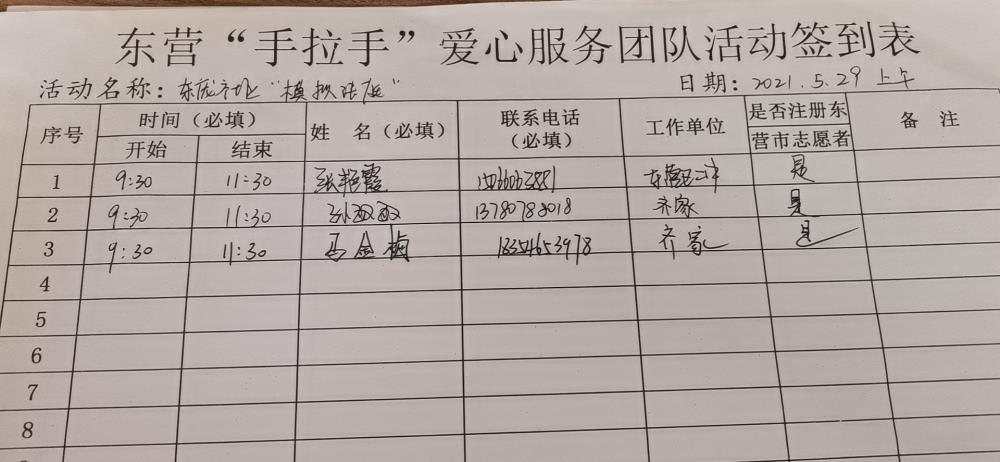 东营“手拉手”爱心服务团队活动签到表
活动名称：东 “模拟法庭” 日期：2021.5.29 上午
序号 时间（必填） 姓 名（必填） 联系电话（必填） 工作单位 是否注册东营市志愿者 备 注
开始 结束
1 9:30 11:30 张艳霞 是
2 9:30 11:30 齐家 是
3 9:30 11:30 马金梅 齐家 是
4
5
6
7
8